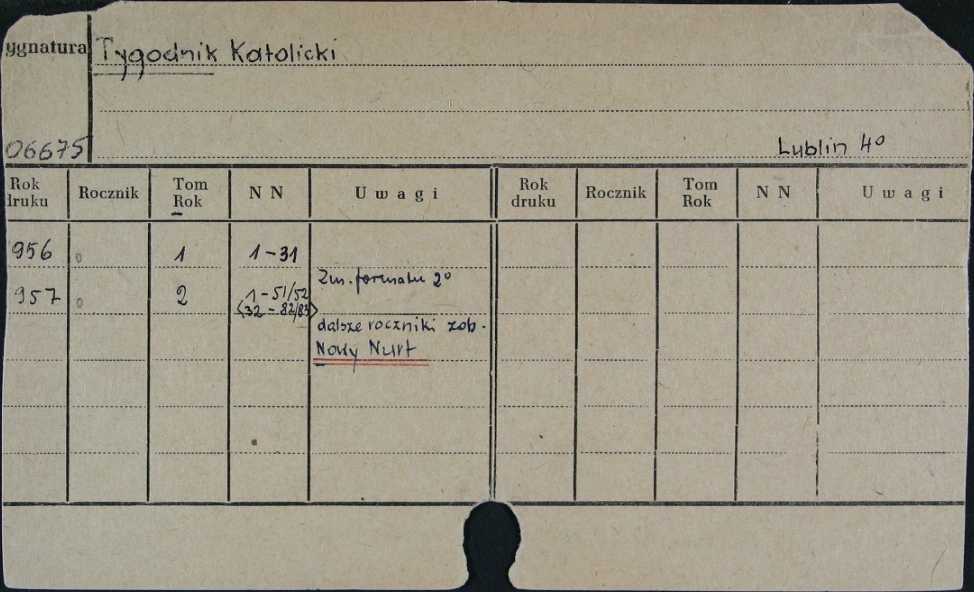 ygnatura Tygodnik Katolicki
06675 Lublin 4º
Rok druku Rocznik Tom Rok N N Uwagi Rok druku Rocznik Tom Rok N N Uwagi
956 0 1 1-31
Zm. formatu 2º
957 0 2 1-51/52
(32-82/83)
dalsze roczniki zob.
Nowy Nurt